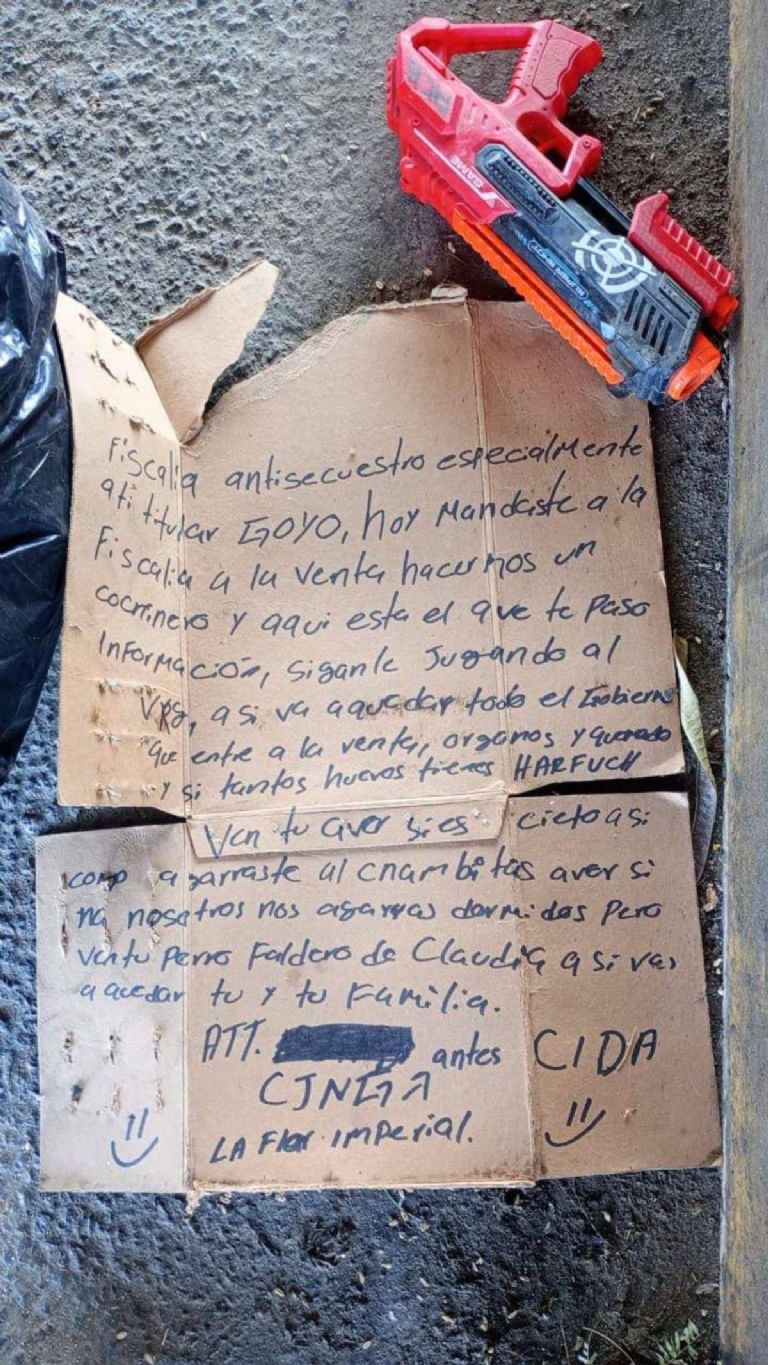 GAME
Fiscalia antisecuestro especialmente
ati titular GOYO, hoy Mandaste a la
Fiscalia a la venta hacernos un
cochinero y aqui esta el que te paso
Información, siganle Jugando al
VRg, a si va a quedar todo el Gobierno
que entre a la venta, organos y
y si tantos huevos tienes HARFUCH
Ven tu aver si es cieto asi
como agarraste al chambitas aver si
na nosotros nos agarras dormidos Pero
ven tu perro Faldero de Claudia a si vas
a quedar tu y tu Familia.
ATT. antes CIDA
CJNGA
LA Flor imperial.